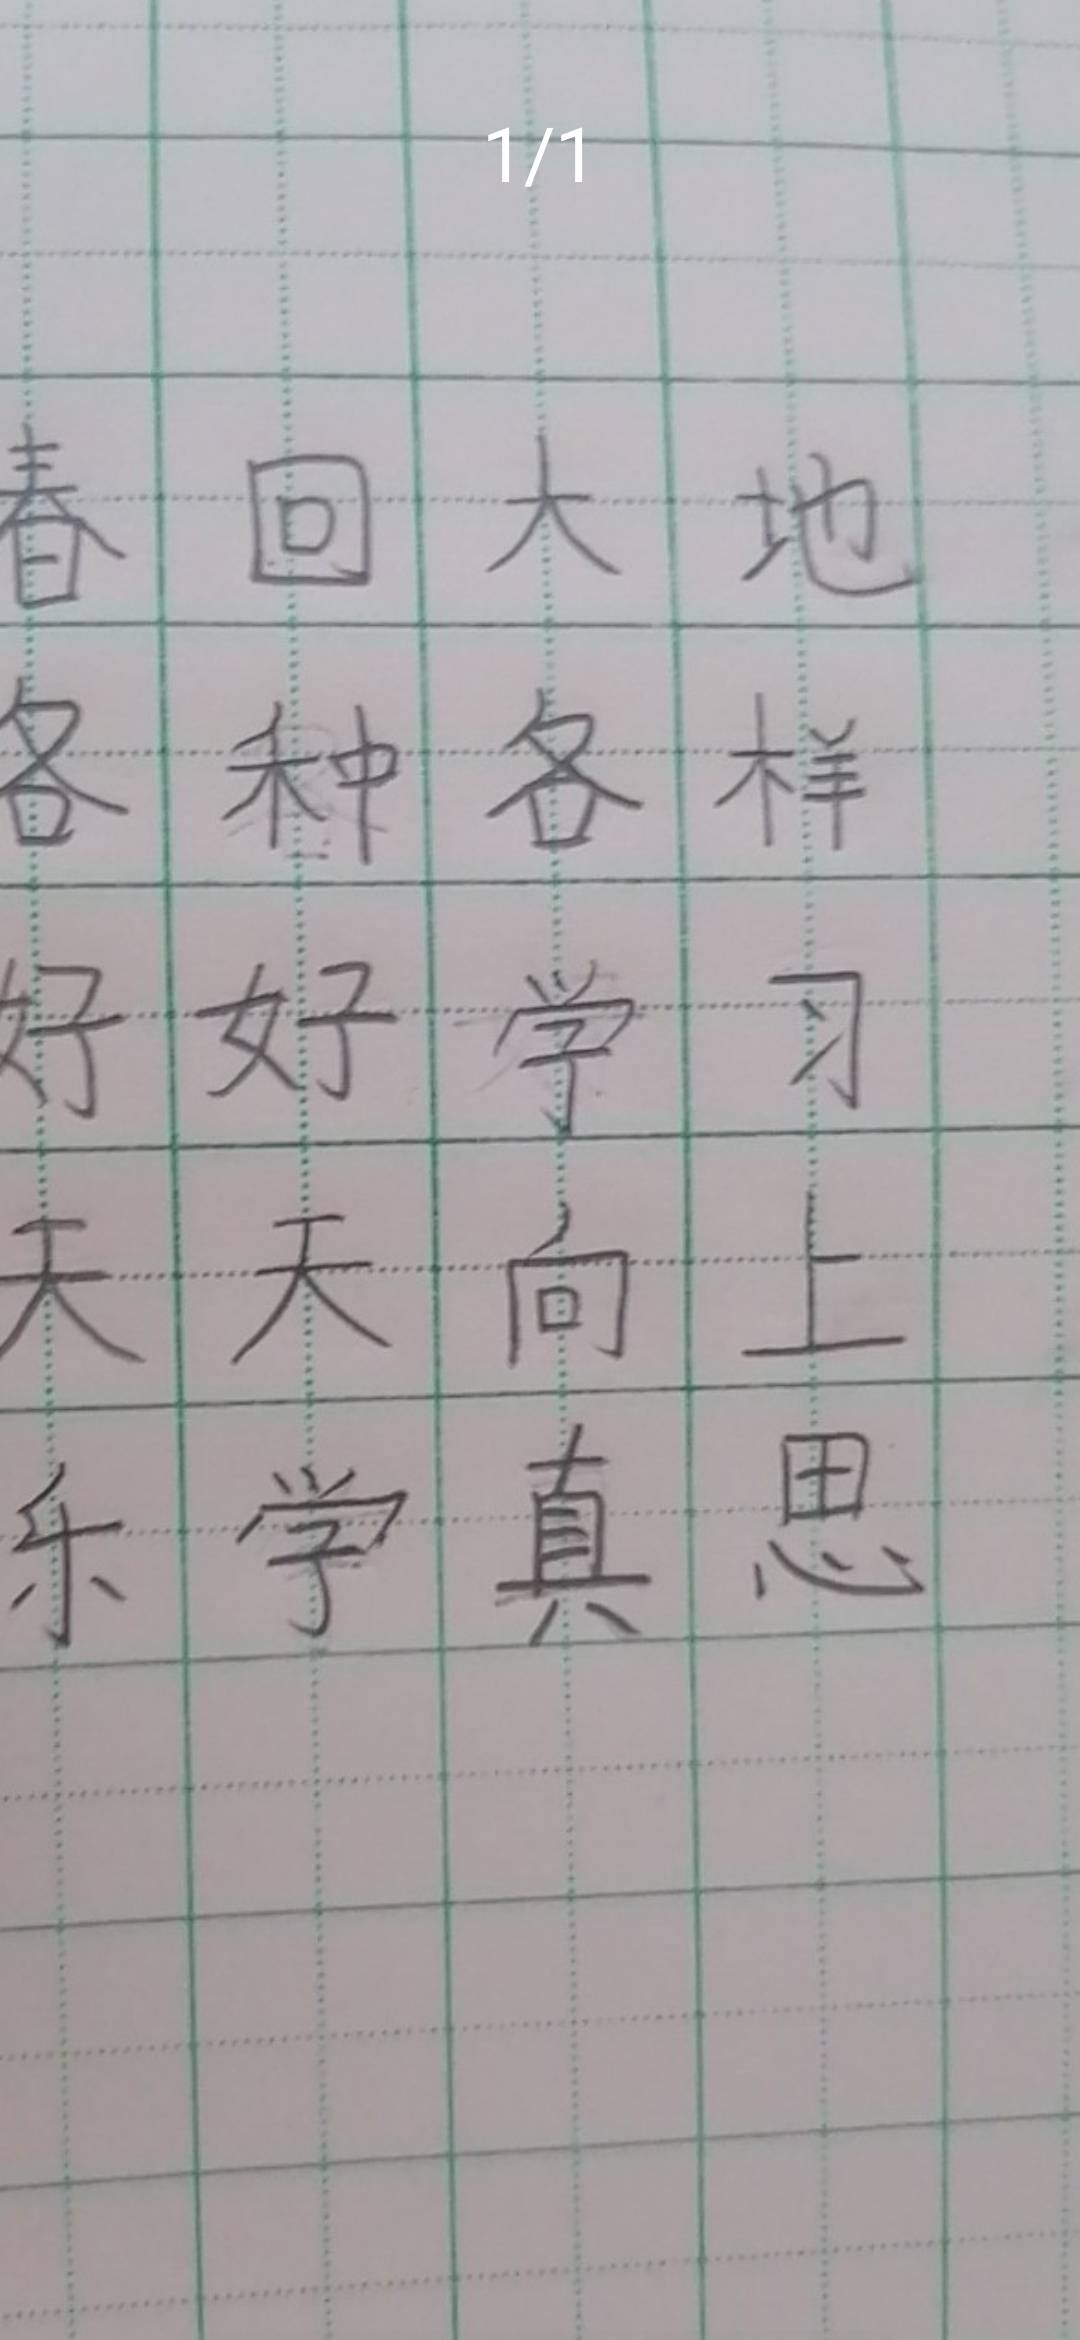 1/1
春回大地
各种各样
好好学习
天天向上
乐学真思